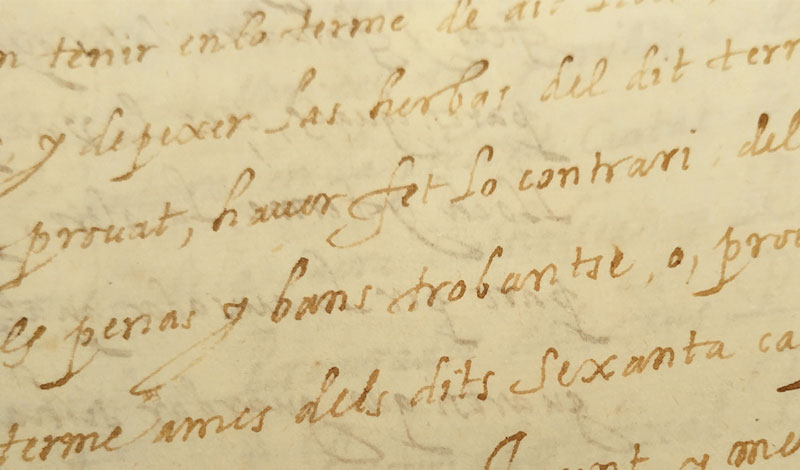 tenir en lo terme de dit
y de pexer las herbas del dit terr
prouat, hauer fet lo contrari del
penas y bans trobantse, o, pro
terme ames dels dits sexanta ca
y me